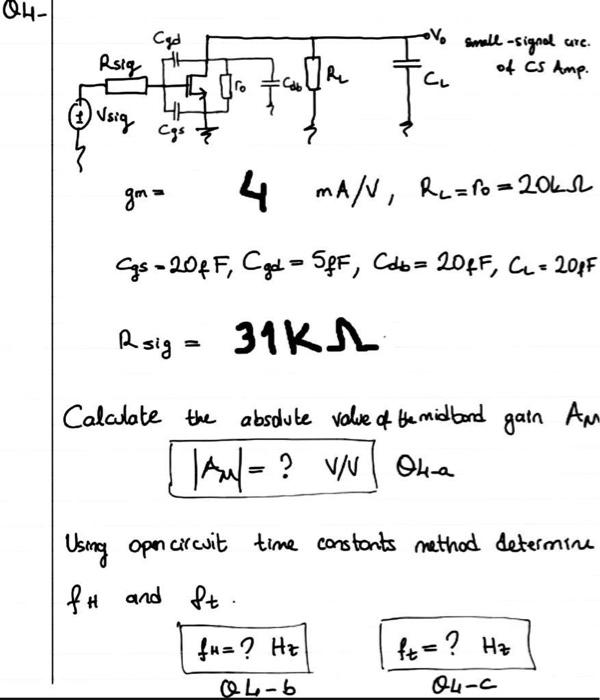 Q4-
Cgd
Vo small-signal circ.
of CS Amp.
Rsig
ro
Cdb
RL
CL
Vsig
Cgs
gm = 4 mA/V, RL = ro = 20kΩ
Cgs = 20fF, Cgd = 5fF, Cdb = 20fF, CL = 20fF
Rsig = 31KΩ
Calculate the absolute value of the midband gain AM
|AM| = ? V/V Q4-a
Using open circuit time constants method determine
fH and ft.
fH = ? Hz ft = ? Hz
Q4-b Q4-c